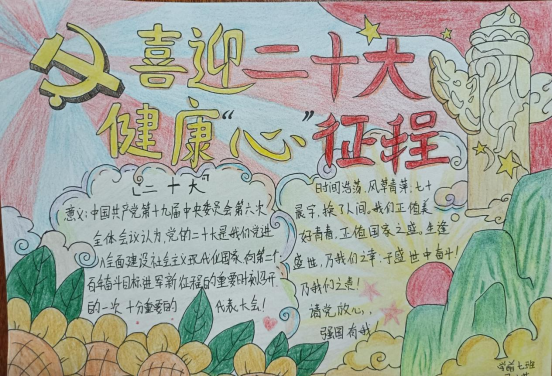 喜迎二十大
健康“心”征程
“二十大”
意义:中国共产党第十九届中央委员会第六次
全体会议认为,党的二十大是我们党进
入全面建设社会主义现代化国家、向第二个
百年奋斗目标进军新征程的重要时刻召开
的一次十分重要的代表大会!
时间浩荡,风草青萍,七十
载守,换了人间。我们正值美
好青春,正值国家之盛。生逢
盛世,乃我们之幸;于盛世中奋斗!
乃我们之志!
请党放心,
强国有我
七班